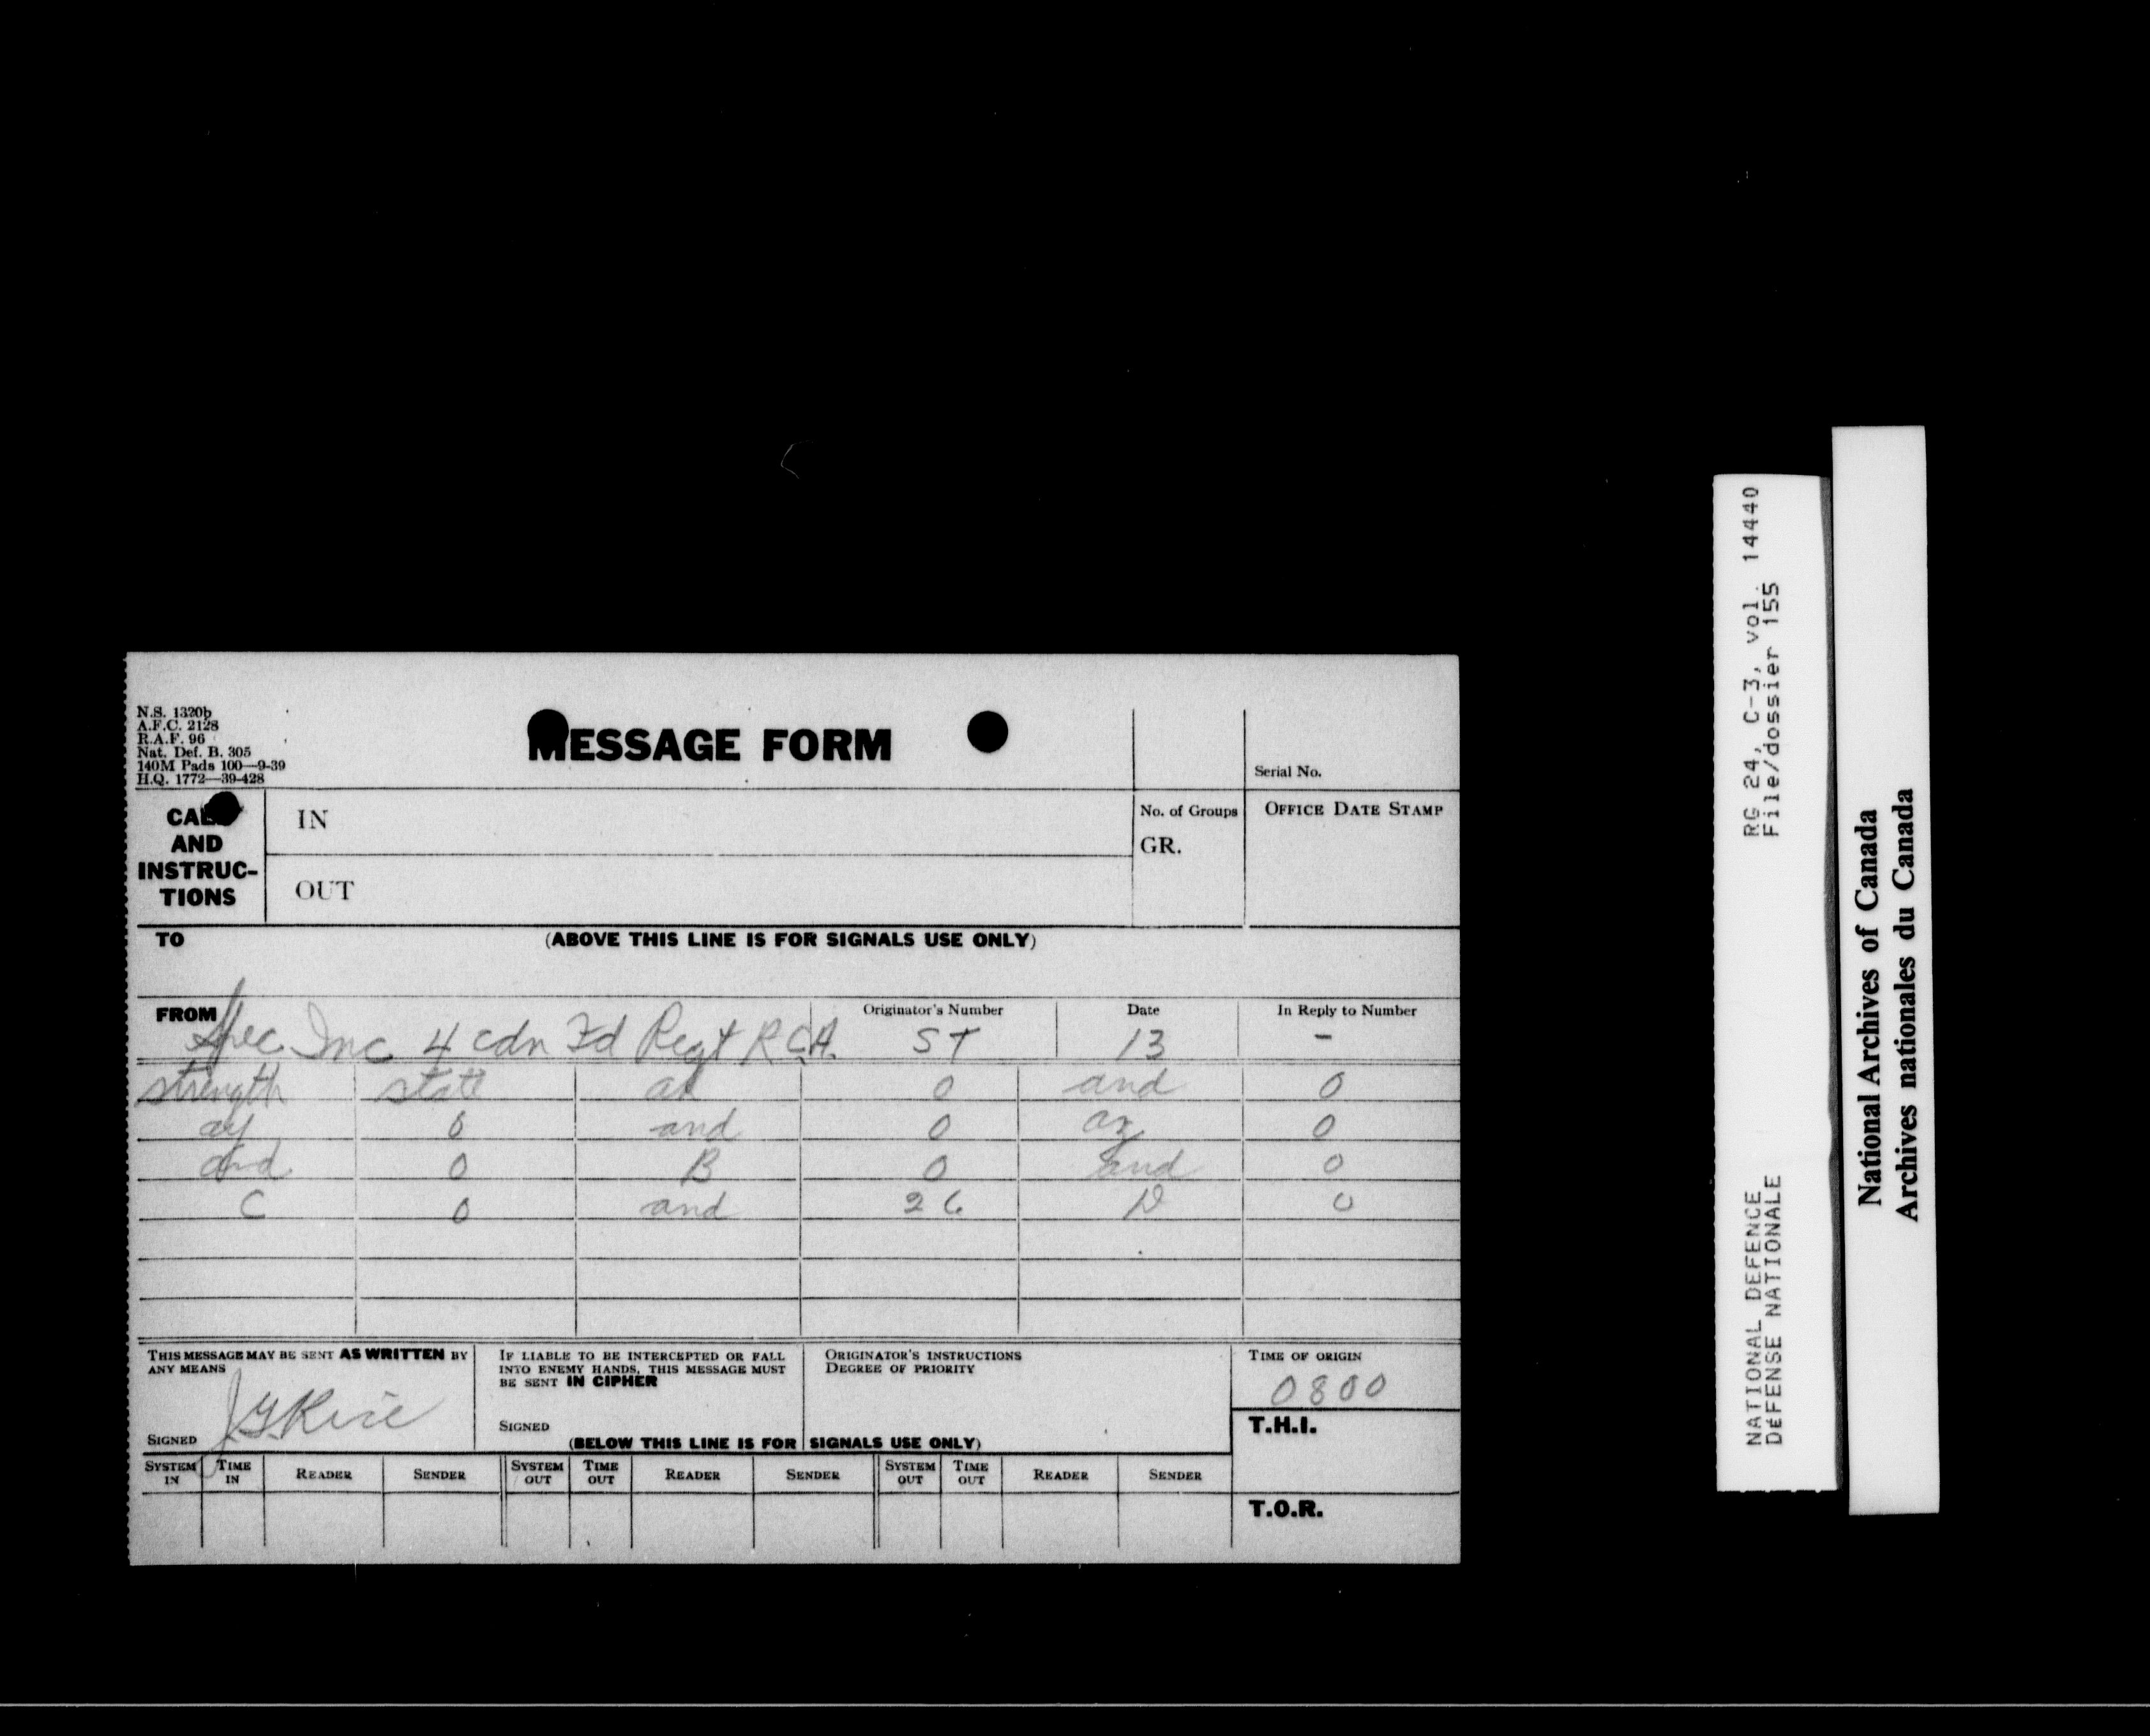 N.S. 1320b
A.F.C. 2128
R.A.F. 96
Nat. Def. B. 305
140M Pads 100—9-39
H.Q. 1772—39-428
MESSAGE FORM
Serial No.
CALL AND INSTRUC-TIONS
IN
OUT
No. of Groups
GR.
OFFICE DATE STAMP
TO (ABOVE THIS LINE IS FOR SIGNALS USE ONLY)
FROM Originator's Number Date In Reply to Number
Spec Inc 4 cdn Fd Regt RCA. ST 13 -
strength state 0 and 0
ay 0 and 0 az 0
and 0 B 0 and 0
C 0 and 26 D 0
THIS MESSAGE MAY BE SENT AS WRITTEN BY
ANY MEANS
SIGNED
IF LIABLE TO BE INTERCEPTED OR FALL
INTO ENEMY HANDS, THIS MESSAGE MUST
BE SENT IN CIPHER
SIGNED
ORIGINATOR'S INSTRUCTIONS
DEGREE OF PRIORITY
TIME OF ORIGIN
0800
T.H.I.
(BELOW THIS LINE IS FOR SIGNALS USE ONLY)
SYSTEM IN TIME IN READER SENDER SYSTEM OUT TIME OUT READER SENDER SYSTEM OUT TIME OUT READER SENDER
T.O.R.
RG 24, C-3, vol. 14440
File/dossier 155
NATIONAL DEFENCE
DÉFENSE NATIONALE
National Archives of Canada
Archives nationales du Canada